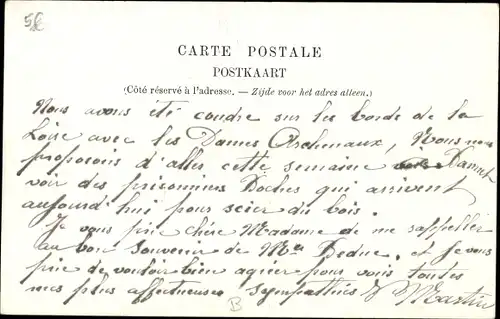 5€
CARTE POSTALE
POSTKAART
(Côté réservé à l'adresse. — Zijde voor het adres alleen.)
Nous avons été coudre sur les bords de la
Loire avec les Dames, Nous nous
proposons d'aller cette semaine
voir des prisonniers Boches qui arrivent
aujourd'hui pour scier du bois.
Je vous prie chère Madame de me rappeller
au bon souvenir de et je vous
prie de vouloir bien agréer pour vous toutes
mes plus affectueuses sympathies
B Martin